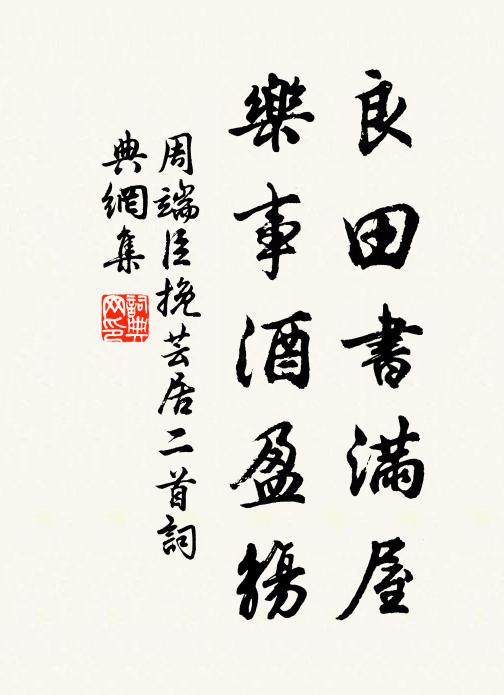 良田書滿屋
樂事酒盈觴
周端臣挽芸居二首詞
典網集
詞典網印